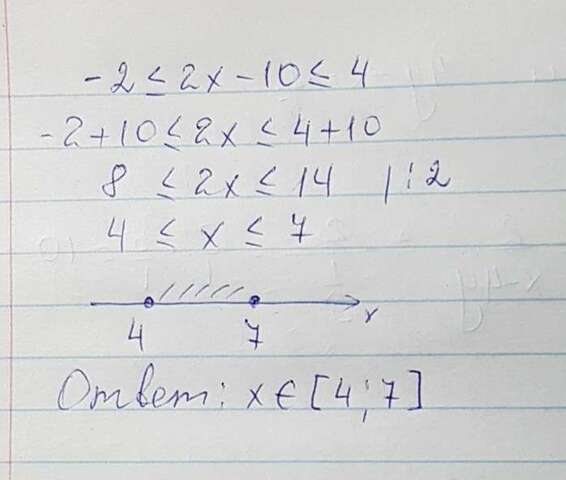 -2 ≤ 2x - 10 ≤ 4
-2+10 ≤ 2x ≤ 4+10
8 ≤ 2x ≤ 14 | : 2
4 ≤ x ≤ 7
x
4 7
Ответ: x ∈ [4; 7]